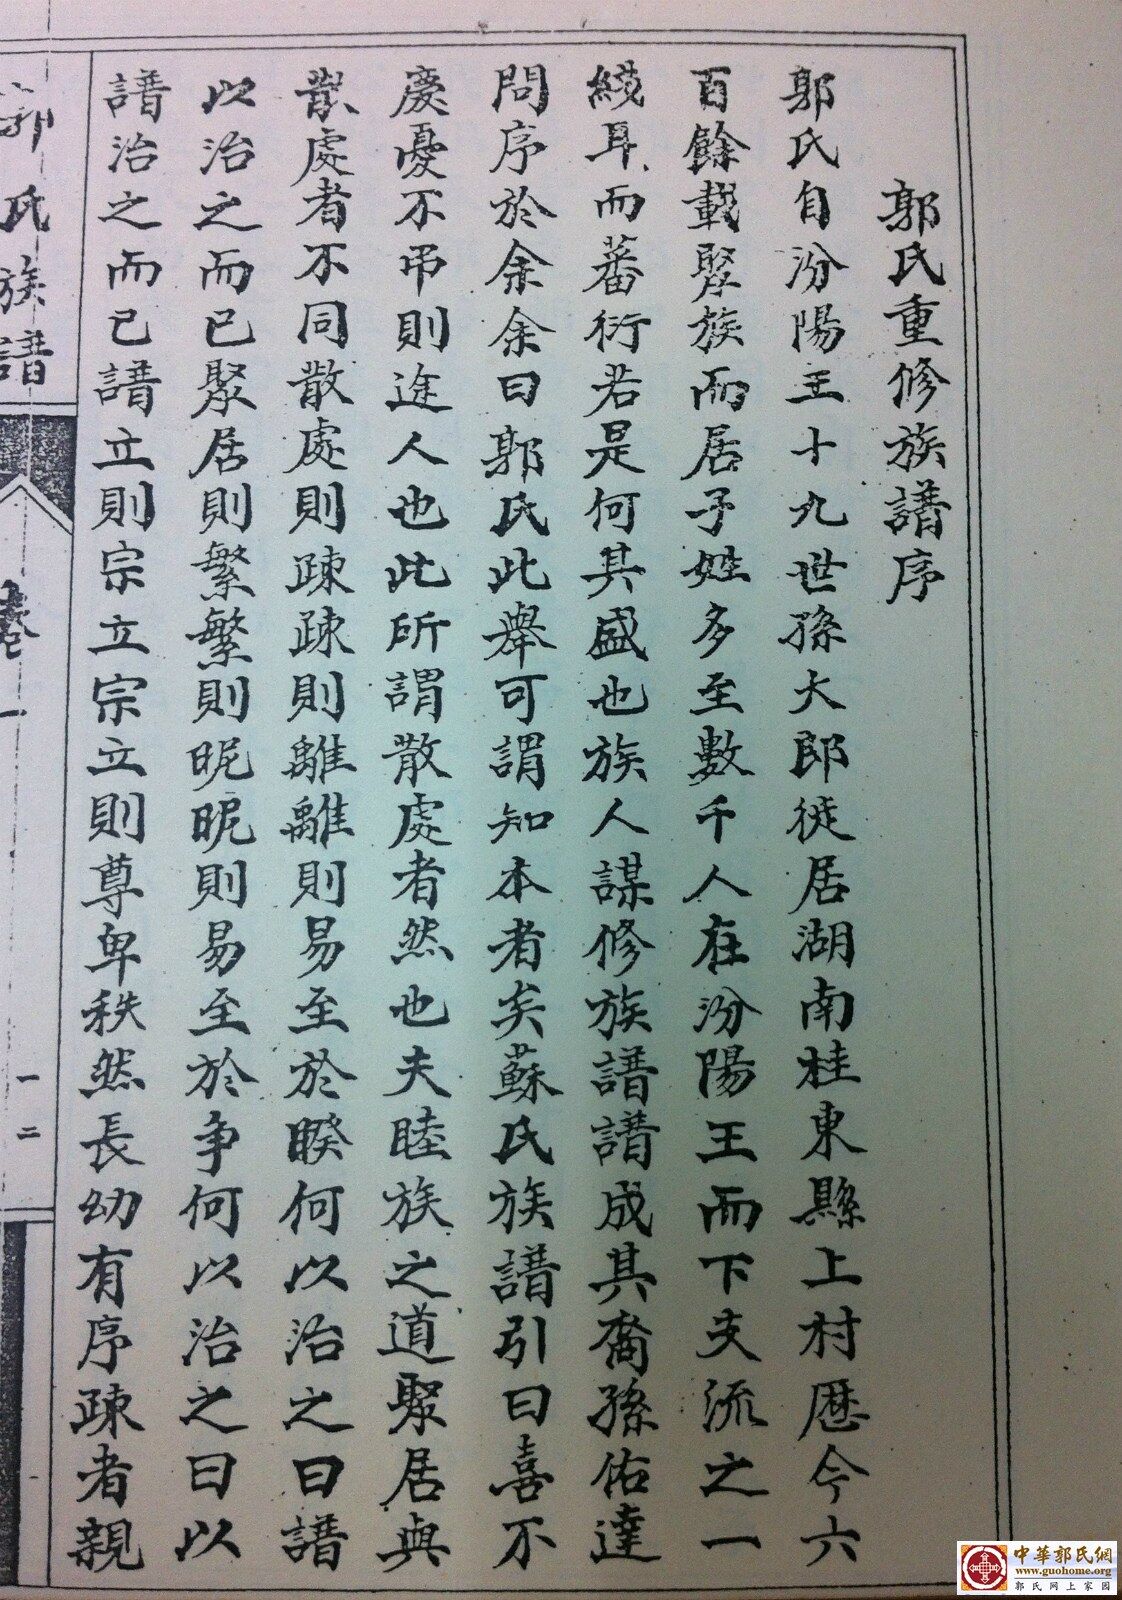 郭氏重修族譜序
郭氏自汾陽王十九世孫大郎徙居湖南桂東縣上村歷今六
百餘載聚族而居子姓多至數千人在汾陽王而下支流之一
綫耳而蕃衍若是何其盛也族人謀修族譜譜成其裔孫佑達
問序於余余曰郭氏此舉可謂知本者矣蘇氏族譜引曰喜不
慶憂不弔則途人也此所謂散處者然也夫睦族之道聚居與
散處者不同散處則疎疎則離離則易至於睽何以治之曰譜
以治之而已聚居則繁繁則昵昵則易至於争何以治之曰以
譜治之而已譜立則宗立宗立則尊卑秩然長幼有序疎者親
郭氏族譜
卷一
一二
中華郭氏網
www.guohome.org
郭氏網上家園